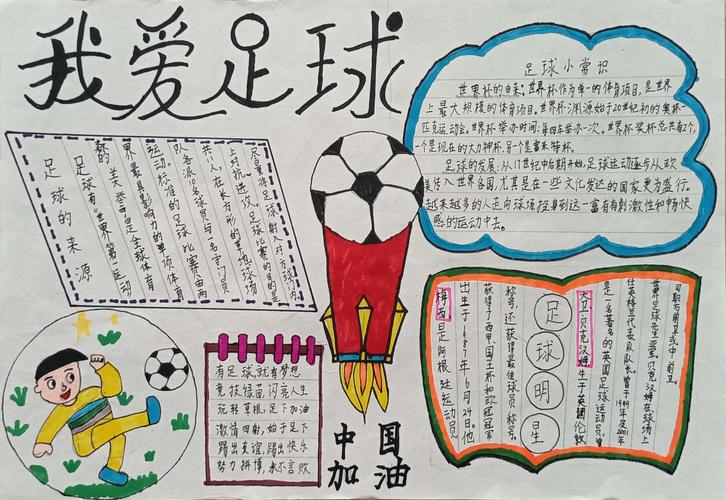 我爱足球
足球的来源
足球有“世界第一运动”
的美誉,是全球体育
界最具影响力的单项体育
运动。标准的足球比赛由两
队各派10名球员与一名守门员
共11人,在长方形的草地球场
上对抗、进攻。足球比赛的目的是
尽量将足球射入对方球门内
足球小常识
世界杯的由来:世界杯作为单一的体育项目,是世界
上最大规模的体育项目。世界杯渊源始于20世纪初的奥林
匹克运动会。世界杯举办时间:每四年举办一次。世界杯奖杯总共有2个,
一个是现在的大力神杯,另一个是雷米特杯。
足球的发展:从17世纪中后期开始,足球运动逐步从欧
美传入世界各国,尤其是在一些文化发达的国家更为盛行。
越来越多的人走向球场投身到这一富有刺激性和畅快
感的运动中去。
有足球,就有梦想
竞技绿茵,闪亮人生
玩转草根,足下加油
激情四射,始于足下
踢出友谊,踢出快乐
努力拼搏,永不言败
中国
加油
梅西是阿根廷运动员
出生于1987年6月24日。他
获得了西甲、国王杯和欧冠冠军
称号,还获得最佳球员称号。
足球明星
大卫·贝克汉姆生于英国伦敦
是一名著名的英国足球运动员,曾
任英格兰代表队队长。曾于1999年及2001年
世界足球先生亚军。贝克汉姆在球场上
司职右前卫或中前卫。